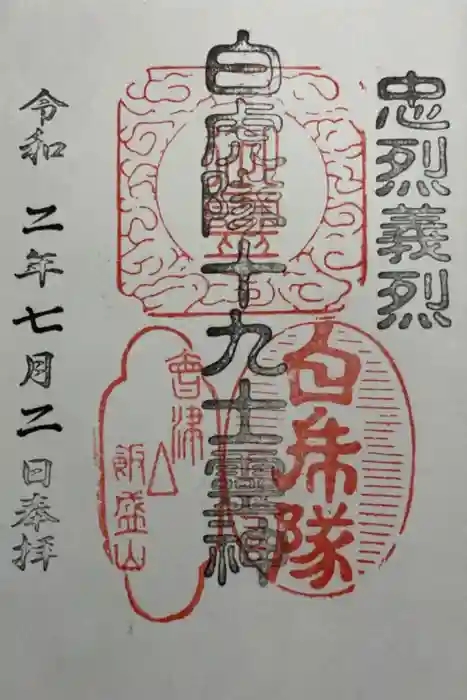 忠烈義烈
白虎隊十九士霊神
白虎隊
會津
飯盛山
令和二年七月二日奉拝